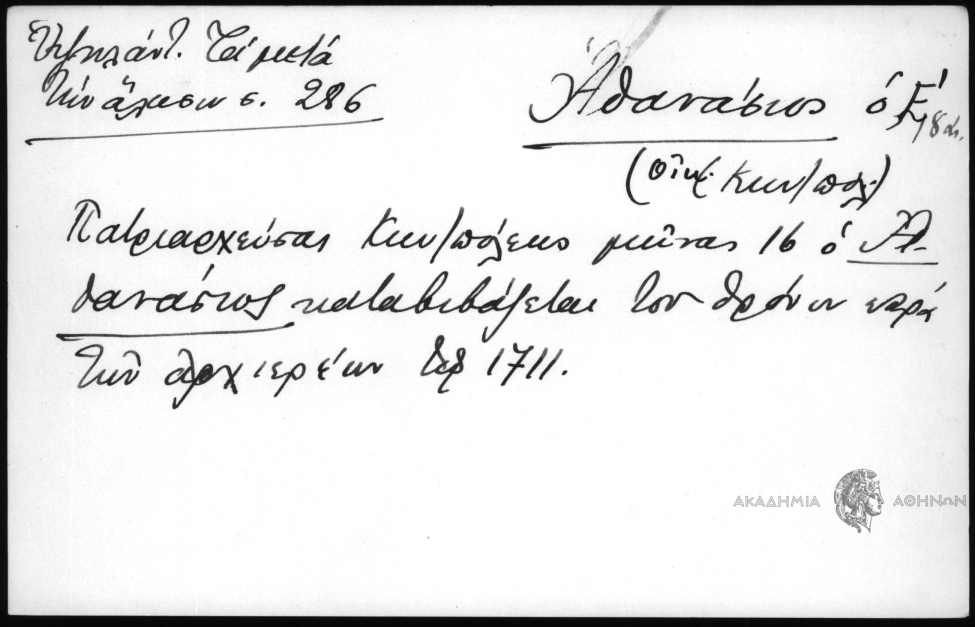 Ὑψηλάντ. Τά μετά
τήν ἅλωσιν σ. 286
Ἀθανάσιος ὁ Ε΄
(Οἰκ. Κων/πόλ.)
Πατριαρχεύσας Κων/πόλεως μῆνας 16 ὁ Ἀ-
θανάσιος καταβιβάζεται τοῦ θρόνου παρά
τῶν ἀρχιερέων τῷ 1711.
ΑΚΑΔΗΜΙΑ ΑΘΗΝΩΝ